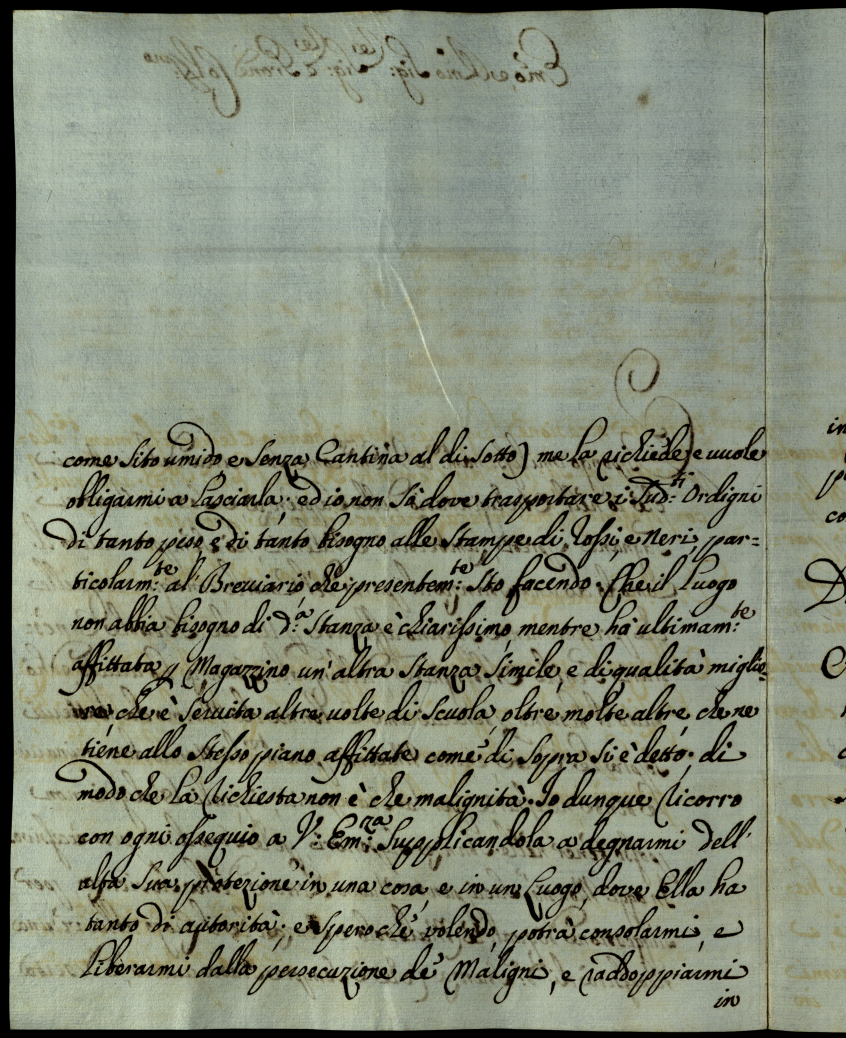 come sito umido e senza Cantina al di sotto) me la richiede, e vuole
obligarmi a lasciarla: ed io non sà dove trasportare i sud:ti Ordigni
di tanto peso, e di tanto bisogno alle Stampe di Rossi, e Neri, par=
ticolarm:te al Breviario che presentem:te sto facendo. Che il Luogo
non abbia bisogno di d:a Stanza è chiarissimo mentre ha ultimam:te
affittata p Magazzino un'altra Stanza simile, e di qualità miglio=
re che è servita altre volte di Scuola, oltre molte altre che ne
tiene allo stesso piano affittate come di sopra si è detto: di
modo che la richiesta non è che malignità. Io dunque ricorro
con ogni ossequio a V: Em:za supplicandola a degnarmi dell'
alta sua protezione in una cosa, e in un Luogo, dove Ella ha
tanto di autorità; e spero che volendo, potrà consolarmi, e
liberarmi dalla persecuzione de' Maligni, e raddoppiarmi
in